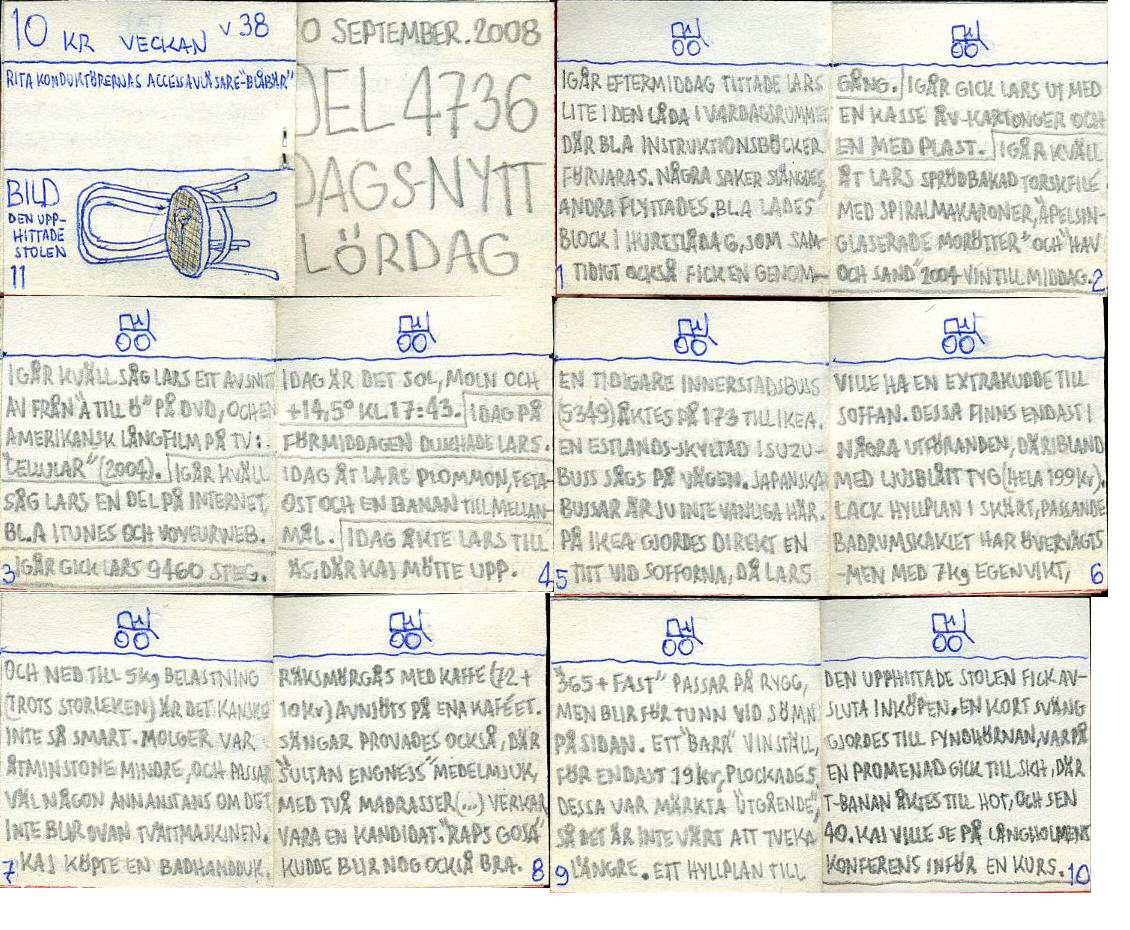 10 KR VECKAN V 38
RITA KONDUKTÖRERNAS ACCESSAVLÄSARE "BLÅBÄR"
BILD
DEN UPP-
HITTADE
STOLEN
11
0 SEPTEMBER. 2008
DEL 4736
DAGS-NYTT
LÖRDAG
IGÅR EFTERMIDDAG TITTADE LARS
LITE I DEN LÅDA I VARDAGSRUMMET
DÄR BLA INSTRUKTIONSBÖCKER
FÖRVARAS. NÅGRA SAKER SLÄNGDES,
ANDRA FLYTTADES. BL.A LADES
BLOCK I HURTSLÅDA G, SOM SAM-
1 TIDIGT OCKSÅ FICK EN GENOM-
GÅNG. IGÅR GICK LARS UT MED
EN KASSE AV KARTONGER OCH
EN MED PLAST. IGÅR KVÄLL
ÅT LARS SPRÖDBAKAD TORSKFILÉ
MED SPIRALMAKARONER, "APELSIN-
GLASERADE MORÖTTER" OCH "HAV
OCH SAND" 2004 VIN TILL MIDDAG. 2
IGÅR KVÄLL SÅG LARS ETT AVSNITT
AV FRÅN "A TILL Ö" PÅ DVD, OCH EN
AMERIKANSK LÅNGFILM PÅ TV:
"CELLULAR" (2004). IGÅR KVÄLL
SÅG LARS EN DEL PÅ INTERNET,
BL.A ITUNES OCH VOYEURWEB.
3 IGÅR GICK LARS 9460 STEG.
IDAG ÄR DET SOL, MOLN OCH
+14,5° KL.17:43. IDAG PÅ
FÖRMIDDAGEN DUSCHADE LARS.
IDAG ÅT LARS PLOMMON, FETA-
OST OCH EN BANAN TILL MELLAN-
MÅL. IDAG ÅKTE LARS TILL
ÄS, DÄR KAJ MÖTTE UPP. 4
EN TIDIGARE INNERSTADSBUSS
(5349) ÅKTES PÅ 173 TILL IKEA.
EN ESTLANDS-SKYLTAD ISUZU-
BUSS SÅGS PÅ VÄGEN. JAPANSKA
BUSSAR ÄR JU INTE VANLIGA HÄR.
PÅ IKEA GJORDES DIREKT EN
5 TITT VID SOFFORNA, DÅ LARS
VILLE HA EN EXTRAKUDDE TILL
SOFFAN. DESSA FINNS ENDAST I
NÅGRA UTFÖRANDEN, DÄRIBLAND
MED LJUSBLÅTT TYG (HELA 199 kr).
LACK HYLLPLAN I SKÄRT, PASSANDE
BADRUMSKAKLET HAR ÖVERVÄGTS
-MEN MED 7kg EGENVIKT, 6
OCH NED TILL 5kg BELASTNING
(TROTS STORLEKEN) ÄR DET KANSKE
INTE SÅ SMART. MOLGER VAR
ÅTMINSTONE MINDRE, OCH PASSAR
VÄL NÅGON ANNANSTANS OM DET
INTE BLIR OVAN TVÄTTMASKINEN.
7 KAJ KÖPTE EN BADHANDDUK.
RÄKSMÖRGÅS MED KAFFE (72+
10kr) AVNJÖTS PÅ ENA KAFÉET.
SÄNGAR PROVADES OCKSÅ, DÄR
"SULTAN ENGNESS" MEDELMJUK,
MED TVÅ MADRASSER (...) VERKAR
VARA EN KANDIDAT. "RAPS GOSA"
KUDDE BLIR NOG OCKSÅ BRA. 8
"365+ FAST" PASSAR PÅ RYGG,
MEN BLIR FÖR TUNN VID SÖMN
PÅ SIDAN. ETT "BARR" VINSTÄLL,
FÖR ENDAST 19kr, PLOCKADES,
DESSA VAR MÄRKTA "UTGÅENDE",
SÅ DET ÄR INTE VÄRT ATT TVEKA
9 LÄNGRE. ETT HYLLPLAN TILL
DEN UPPHITTADE STOLEN FICK AV-
SLUTA INKÖPEN. EN KORT SVÄNG
GJORDES TILL FYNDHÖRNAN, VARPÅ
EN PROMENAD GICK TILL SICH, DÄR
T-BANAN ÅKTES TILL HOT, OCH SEN
40. KAJ VILLE SE PÅ LÅNGHOLMENS
KONFERENS INFÖR EN KURS. 10